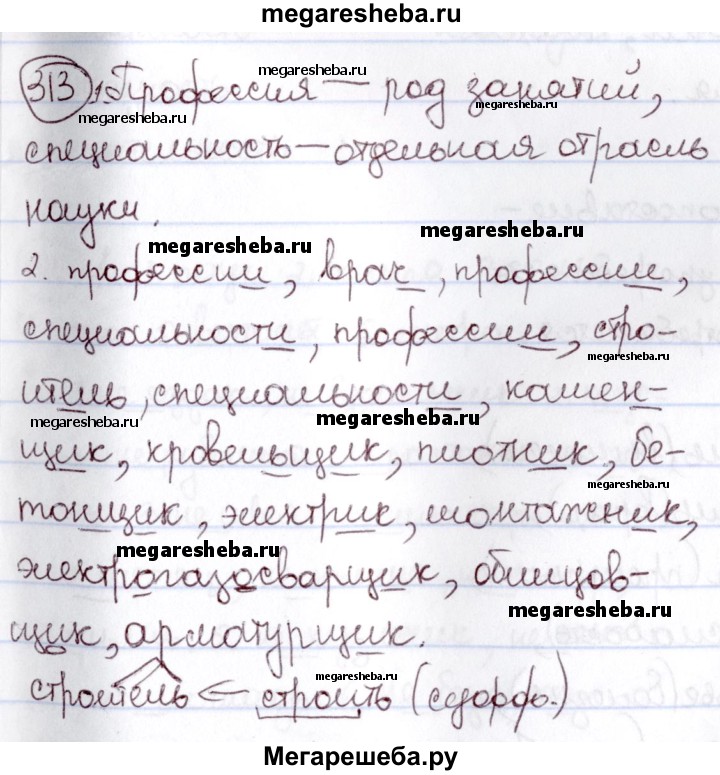 megaresheba.ru
313 1. Профессия — род занятий,
megaresheba.ru
megaresheba.ru
специальность — отдельная отрасль
науки.
megaresheba.ru
megaresheba.ru
2. профессии, врач, профессии,
специальности, профессии, стро-
megaresheba.ru
итель, специальности, камен-
megaresheba.ru
megaresheba.ru
щик, кровельщик, плотник, бе-
megaresheba.ru
тонщик, электрик, монтажник,
megaresheba.ru
электрогазосварщик, облицов-
megaresheba.ru
щик, арматурщик.
megaresheba.ru
строитель ← строить (суффф.)
Мегарешеба.ру